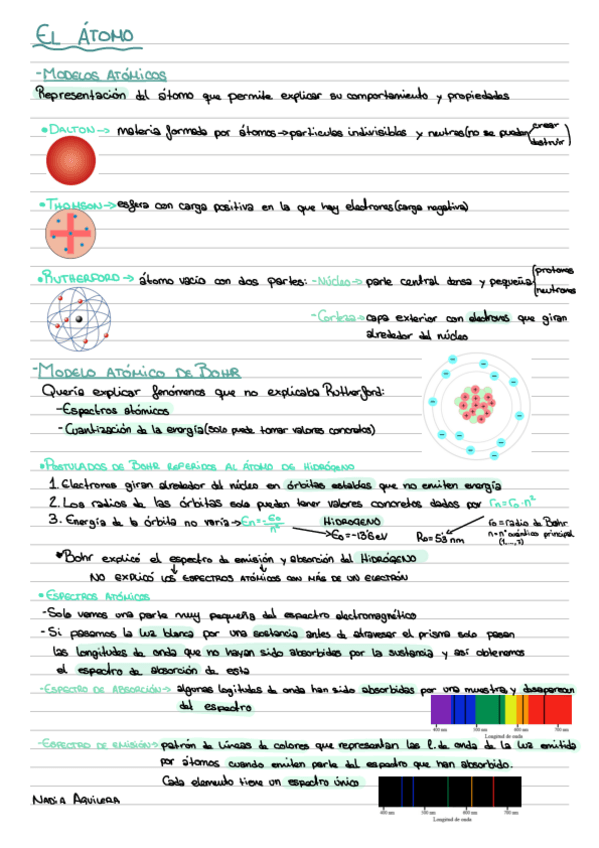 EL ÁTOMO
-MODELOS ATÓMICOS
Representación del átomo que permite explicar su comportamiento y propiedades
•DALTON→ materia formada por átomos→partículas indivisibles y neutras(no se pueden crear
destruir)
•THOMSON→esfera con carga positiva en la que hay electrones(carga negativa)
•RUTHERFORD→ átomo vacío con dos partes: -Núcleo→ parte central densa y pequeña protones
neutrones
-Corteza→capa exterior con electrones que giran
alrededor del núcleo
-MODELO ATÓMICO DE BOHR
Quería explicar fenómenos que no explicaba Rutherford:
-Espectros atómicos
-Cuantización de la energía(solo puede tomar valores concretos)
•POSTULADOS DE BOHR REFERIDOS AL ÁTOMO DE HIDRÓGENO
1. Electrones giran alrededor del núcleo en órbitas estables que no emiten energía
2. Los radios de las órbitas solo pueden tener valores concretos dados por rn=r0·n²
3. Energía de la órbita no varía→En=-E0/n² HIDRÓGENO
→E0=-13'6eV R0=53 nm
r0=radio de Bohr
n=nº cuántico principal
(1,...,7)
Bohr explicó el espectro de emisión y absorción del HIDRÓGENO
NO EXPLICÓ LOS ESPECTROS ATÓMICOS CON MÁS DE UN ELECTRÓN
•ESPECTROS ATÓMICOS
-Solo vemos una parte muy pequeña del espectro electromagnético
-Si pasamos la luz blanca por una sustancia antes de atravesar el prisma solo pasan
las longitudes de onda que no hayan sido absorbidas por la sustancia y así obtenemos
el espectro de absorción de esta
-ESPECTRO DE ABSORCIÓN→ algunas logitudes de onda han sido absorbidas por una muestra y desaparecen
del espectro
400 nm 500 nm 600 nm 700 nm
Longitud de onda
-ESPECTRO DE EMISIÓN→ patrón de líneas de colores que representan las l. de onda de la luz emitida
por átomos cuando emiten parte del espectro que han absorbido.
Cada elemento tiene un espectro único
400 nm 500 nm 600 nm 700 nm
Longitud de onda
NADIA AGUILERA